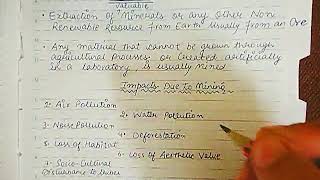 valuable
• Extraction of Minerals or any Other Non
Renewable Resource from Earth Usually from an Ore
• Any material that cannot be grown through
agricultural processes or Created artificially
in a laboratory, is usually mined
Impacts Due To Mining
2- Air Pollution 2- Water Pollution
3- Noise Pollution 4- Deforestation
5- Loss of Habitat 6- Loss of Aesthetic Value
7- Socio-Cultural
Disturbance to